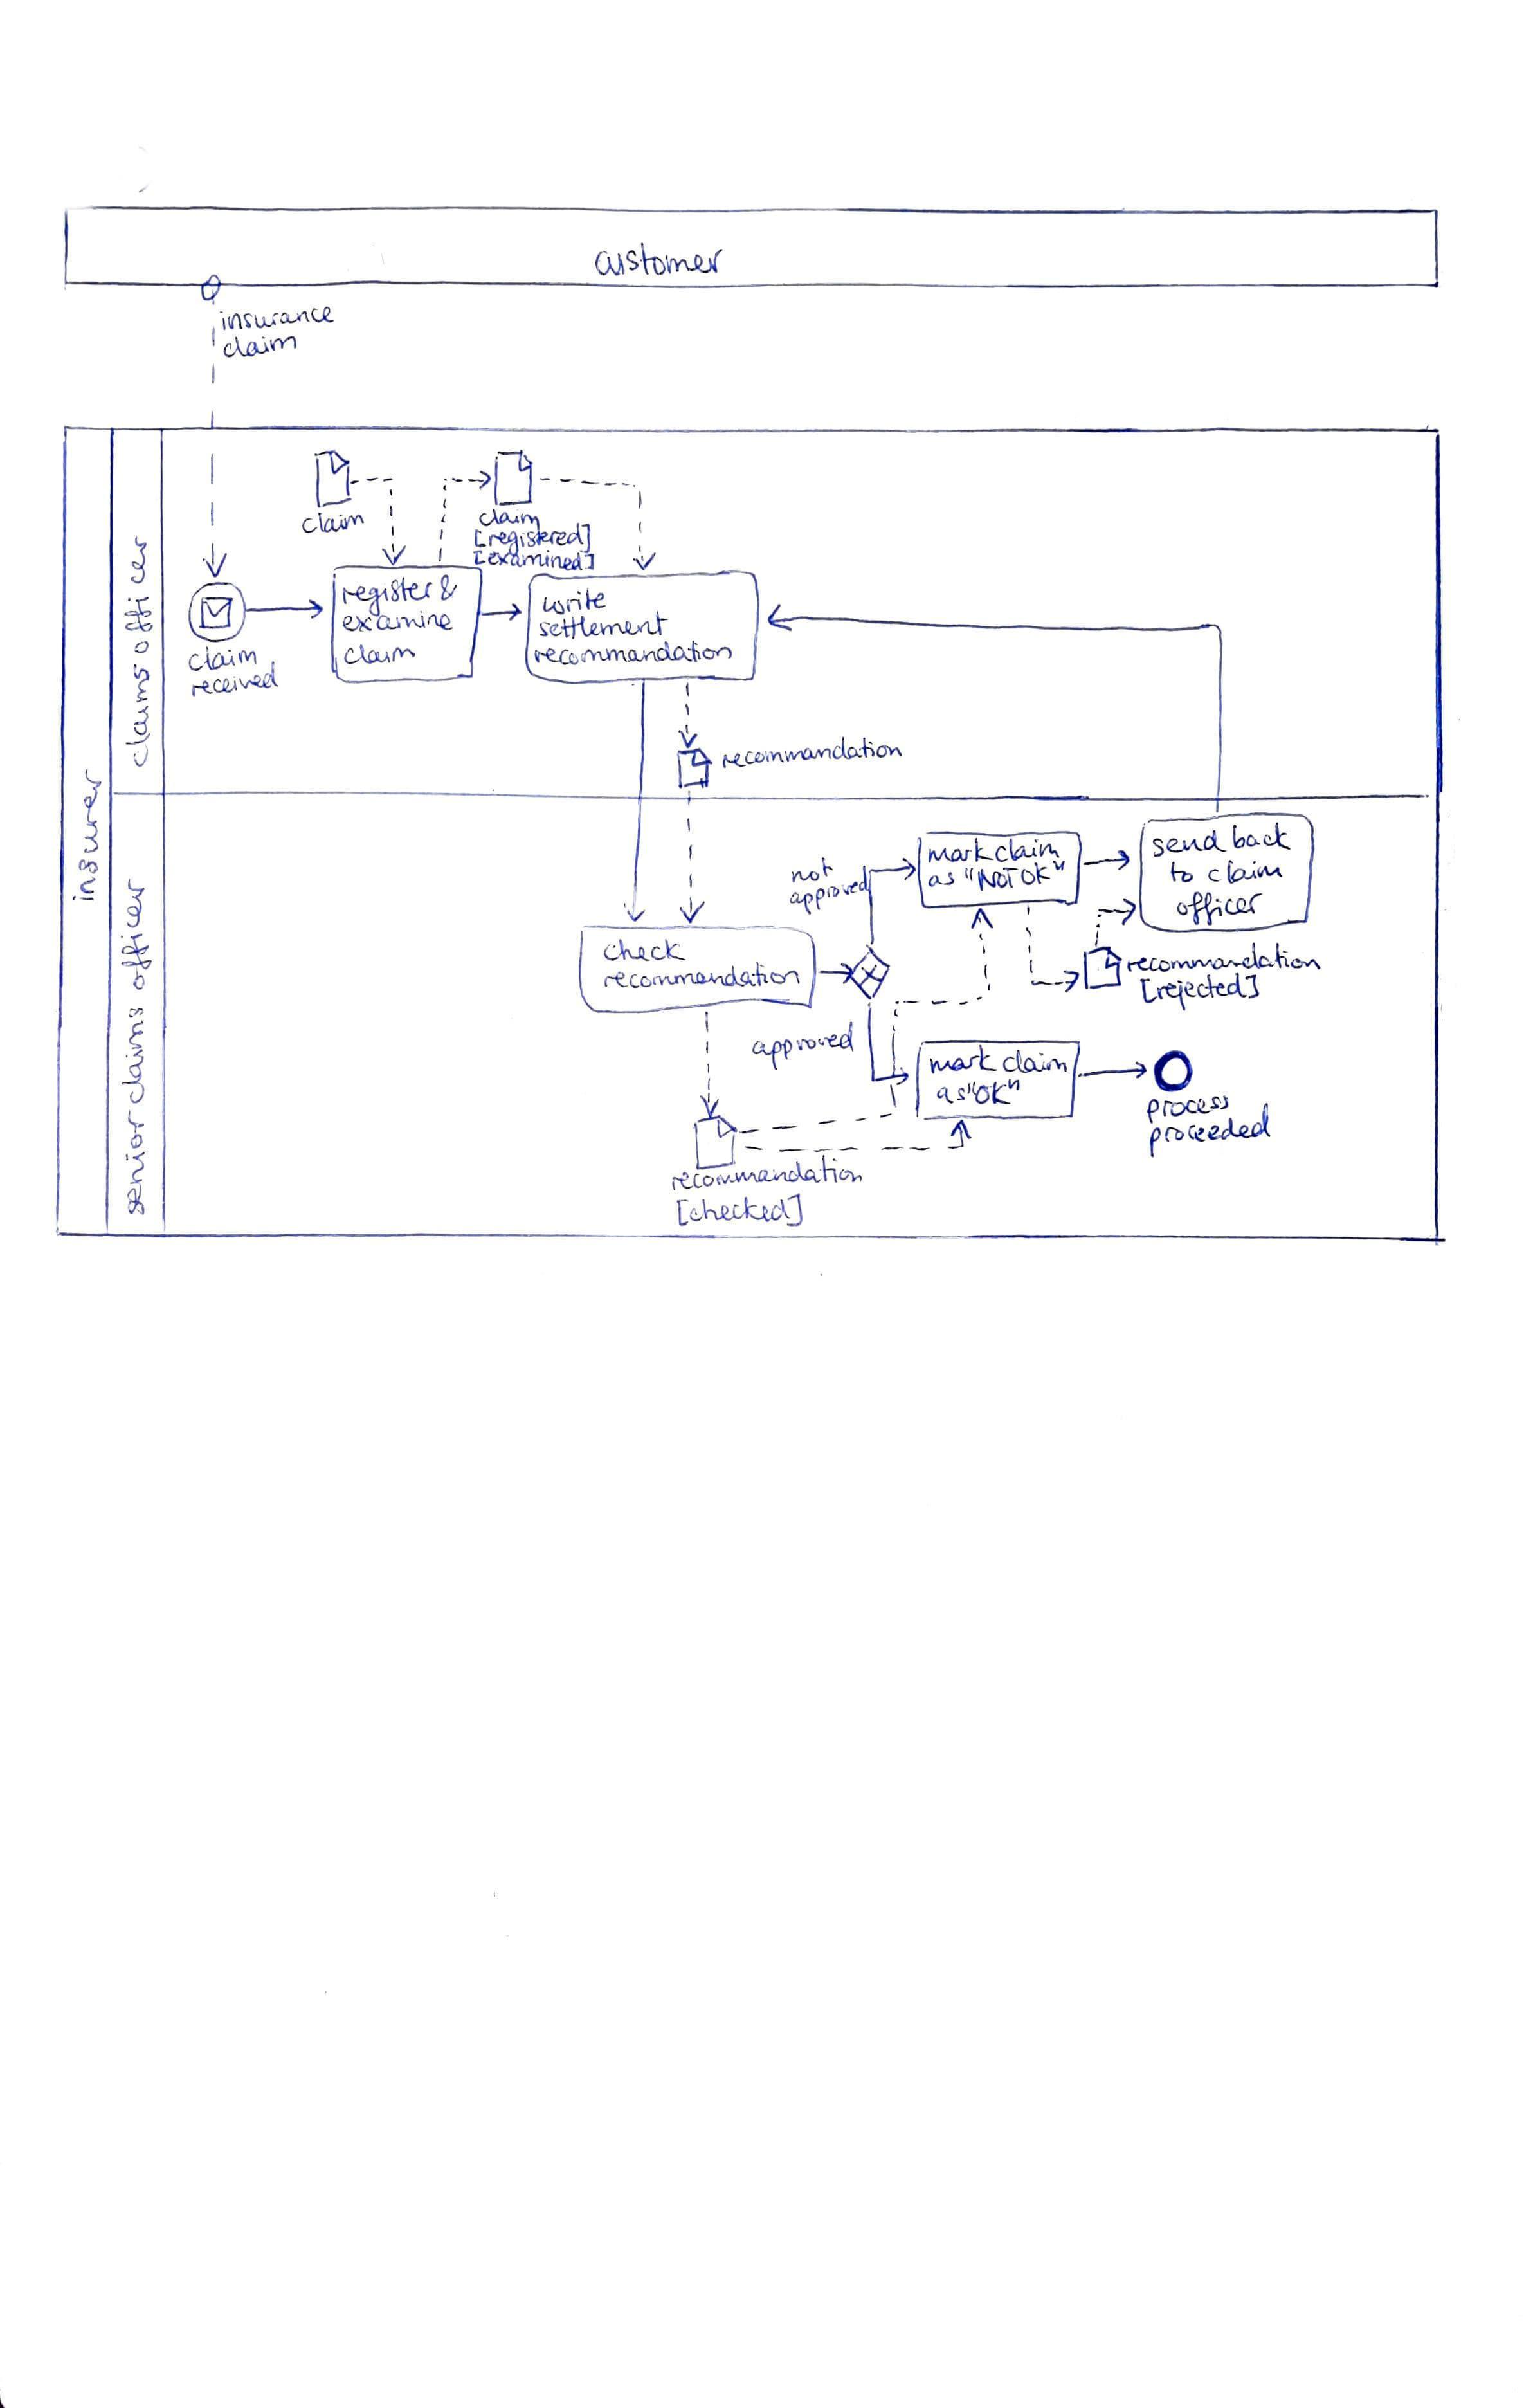 customer
insurance
claim
insurer
claims officer
claim
claim
[registered]
[examined]
claim
received
register &
examine
claim
write
settlement
recommandation
recommandation
senior claims officer
check
recommandation
not
approved
approved
mark claim
as "NOT OK"
send back
to claim
officer
recommandation
[rejected]
mark claim
as "OK"
process
proceeded
recommandation
[checked]